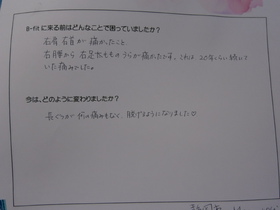 B-fit に来る前はどんなことで困っていましたか？
右肩 右首が 痛かったこと
右腰から 右足太もものうらが痛かったです。これは 20年くらい続いて
いた痛みでした。
今は、どのように変わりましたか？
何の痛みもなく、
ようになりました